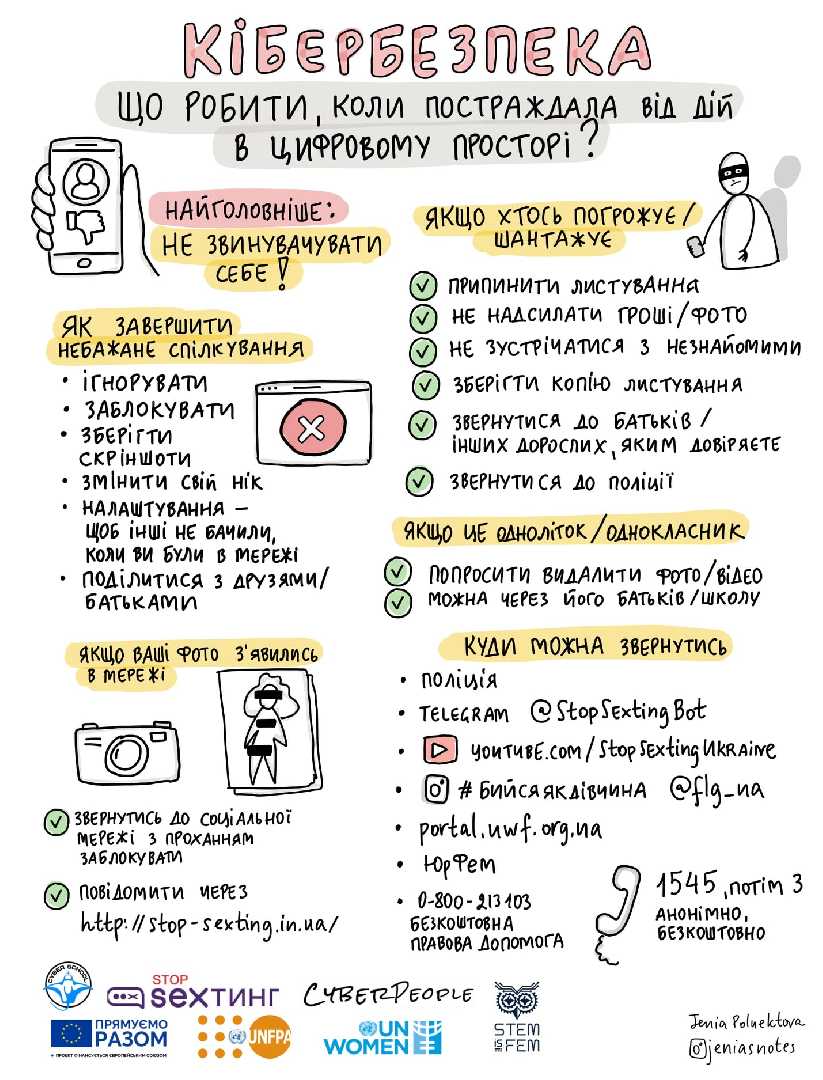 КІБЕРБЕЗПЕКА
ЩО РОБИТИ, КОЛИ ПОСТРАЖДАЛА ВІД ДІЙ
В ЦИФРОВОМУ ПРОСТОРІ?
НАЙГОЛОВНІШЕ:
НЕ ЗВИНУВАЧУВАТИ
СЕБЕ!
ЯК ЗАВЕРШИТИ
НЕБАЖАНЕ СПІЛКУВАННЯ
• ІГНОРУВАТИ
• ЗАБЛОКУВАТИ
• ЗБЕРІГТИ
СКРІНШОТИ
• ЗМІНИТИ СВІЙ НІК
• НАЛАШТУВАННЯ –
ЩОБ ІНШІ НЕ БАЧИЛИ,
КОЛИ ВИ БУЛИ В МЕРЕЖІ
• ПОДІЛИТИСЯ З ДРУЗЯМИ/
БАТЬКАМИ
ЯКЩО ВАШІ ФОТО З'ЯВИЛИСЬ
В МЕРЕЖІ
ЗВЕРНУТИСЬ ДО СОЦІАЛЬНОЇ
МЕРЕЖІ З ПРОХАННЯМ
ЗАБЛОКУВАТИ
ПОВІДОМИТИ ЧЕРЕЗ
http://stop-sexting.in.ua/
ЯКЩО ХТОСЬ ПОГРОЖУЄ/
ШАНТАЖУЄ
ПРИПИНИТИ ЛИСТУВАННЯ
НЕ НАДСИЛАТИ ГРОШІ/ФОТО
НЕ ЗУСТРІЧАТИСЯ З НЕЗНАЙОМИМИ
ЗБЕРІГТИ КОПІЮ ЛИСТУВАННЯ
ЗВЕРНУТИСЯ ДО БАТЬКІВ/
ІНШИХ ДОРОСЛИХ, ЯКИМ ДОВІРЯЄТЕ
ЗВЕРНУТИСЯ ДО ПОЛІЦІЇ
ЯКЩО ЦЕ ОДНОЛІТОК/ОДНОКЛАСНИК
ПОПРОСИТИ ВИДАЛИТИ ФОТО/ВІДЕО
МОЖНА ЧЕРЕЗ ЙОГО БАТЬКІВ/ШКОЛУ
КУДИ МОЖНА ЗВЕРНУТИСЬ
• ПОЛІЦІЯ
• TELEGRAM @StopSextingBot
• YOUTUBE.COM/StopSextingUkraine
• #БИЙСЯЯКДІВЧИНА @flg_ua
• portal.uwf.org.ua
• ЮрФем
• 0-800-213103
БЕЗКОШТОВНА
ПРАВОВА ДОПОМОГА
1545, ПОТІМ 3
АНОНІМНО,
БЕЗКОШТОВНО
CYBER SCHOOL
STOP
SEXТИНГ
CYBERPEOPLE
STEM
IS
FEM
ПРЯМУЄМО
РАЗОМ
ПРОЄКТ ФІНАНСУЄТЬСЯ ЄВРОПЕЙСЬКИМ СОЮЗОМ
UNFPA
UN
WOMEN
Jenia Poluektova
@jeniasnotes